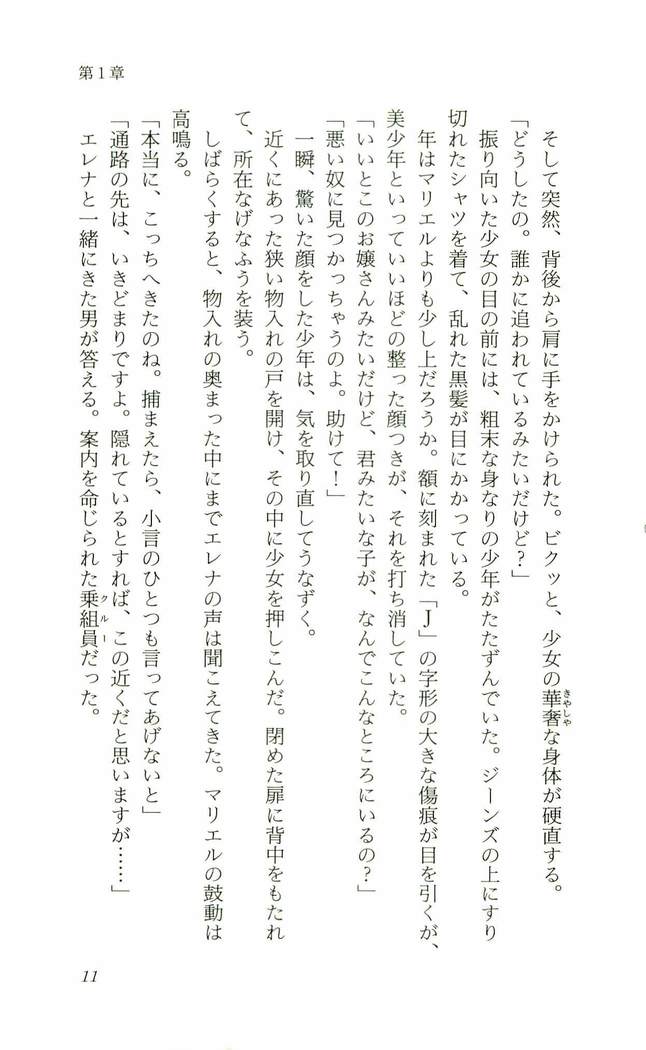 第1章
そして突然、背後から肩に手をかけられた。ビクッと、少女の華奢な身体が硬直する。
「どうしたの。誰かに追われているみたいだけど?」
振り向いた少女の目の前には、粗末な身なりの少年がたたずんでいた。ジーンズの上にすり
切れたシャツを着て、乱れた黒髪が目にかかっている。
年はマリエルよりも少し上だろうか。額に刻まれた「J」の字形の大きな傷痕が目を引くが、
美少年といっていいほどの整った顔つきが、それを打ち消していた。
「いいとこのお嬢さんみたいだけど、君みたいな子が、なんでこんなところにいるの?」
「悪い奴に見つかっちゃうのよ。助けて!」
一瞬、驚いた顔をした少年は、気を取り直してうなずく。
近くにあった狭い物入れの戸を開け、その中に少女を押しこんだ。閉めた扉に背中をもたれ
て、所在なげなふうを装う。
しばらくすると、物入れの奥まった中にまでエレナの声は聞こえてきた。マリエルの鼓動は
高鳴る。
「本当に、こっちへきたのね。捕まえたら、小言のひとつも言ってあげないと」
「通路の先は、いきどまりですよ。隠れているとすれば、この近くだと思いますが……」
エレナと一緒にきた男が答える。案内を命じられた乗組員だった。
きやしや
クルー
11